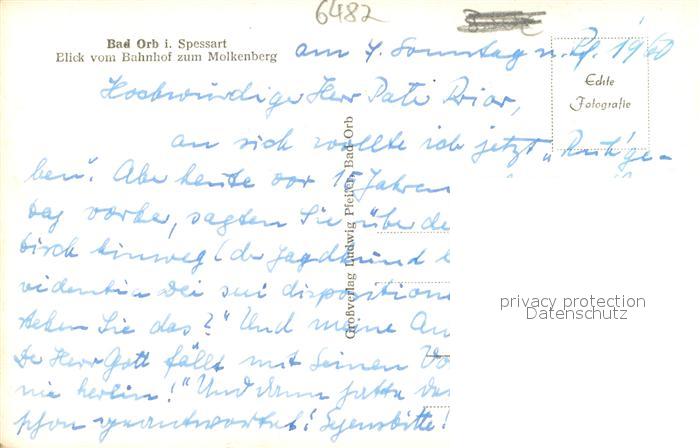 6482
Bad Orb i. Spessart
Blick vom Bahnhof zum Molkenberg
am 7. Sonntag n. Pf. 1960
Echte
Fotografie
Hochwürdiger Herr Pater Prior,
an sich wollte ich jetzt „Ruh' ge-
ben". Aber heute vor 15 Jahren
tag vorher, sagten Sie über de
hinweg (der Jagdhund
videntia Dei sui dispositione
stehen Sie das?" Und meine An
Der Herr Gott fällt mit Seinen Vo
nie herein!" Und dann hatte da
phon geantwortet: Segensbitte!
Großverlag Ludwig Pfeifer, Bad-Orb
privacy protection
Datenschutz